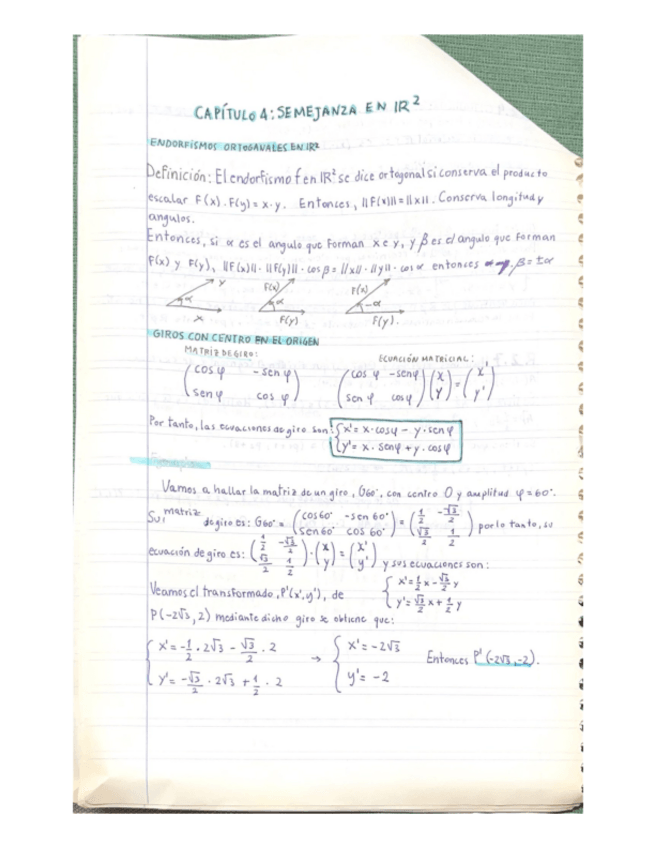 CAPÍTULO 4: SEMEJANZA EN IR²
ENDORFISMOS ORTOGANALES EN IR²
Definición: El endorfismo f en IR² se dice ortogonal si conserva el producto
escalar F(x) . F(y) = x · y. Entonces, ||F(x)|| = ||x||. Conserva longitud y
angulos.
Entonces, si α es el angulo que forman x e y, y β es el angulo que forman
F(x) y F(y), ||F(x)|| · ||F(y)|| · cos β = ||x|| · ||y|| · cos α entonces β = ±α
y F(x) F(x)
α α -α
x F(y) F(y).
GIROS CON CENTRO EN EL ORIGEN
MATRIZ DE GIRO: ECUACIÓN MATRICIAL:
(cos φ - sen φ) (cos φ - sen φ) (x) = (x')
(sen φ cos φ) (sen φ cos φ) (y) (y')
Por tanto, las ecuaciones de giro son: { x' = x · cos φ - y · sen φ
{ y' = x · sen φ + y · cos φ
Ejemplo:
Vamos a hallar la matriz de un giro, G60°, con centro O y amplitud φ = 60°.
Su matriz de giro es: G60° = (cos 60° - sen 60°) = (1/2 -√3/2) por lo tanto, su
(sen 60° cos 60°) (√3/2 1/2)
ecuación de giro es: (1/2 -√3/2) · (x) = (x') y sus ecuaciones son:
(√3/2 1/2) (y) (y')
{ x' = 1/2 x - √3/2 y
{ y' = √3/2 x + 1/2 y
Veamos el transformado, P'(x', y'), de
P(-2√3, 2) mediante dicho giro se obtiene que:
{ x' = -1/2 · 2√3 - √3/2 · 2 → { x' = -2√3 Entonces P'(-2√3, -2).
{ y' = -√3/2 · 2√3 + 1/2 · 2 { y' = -2